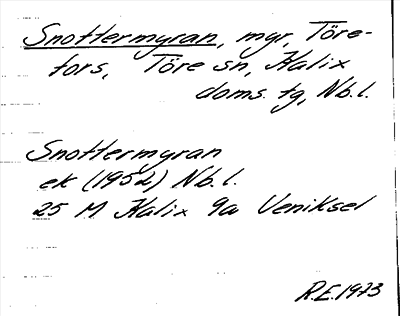 Snottermyran, myr, Töre-
fors, Töre sn, Kalix
doms. tg, Nb.l.
Snottermyran
ek (1952) Nb.l.
25 M Kalix 9a Veniksel
R.E.1973